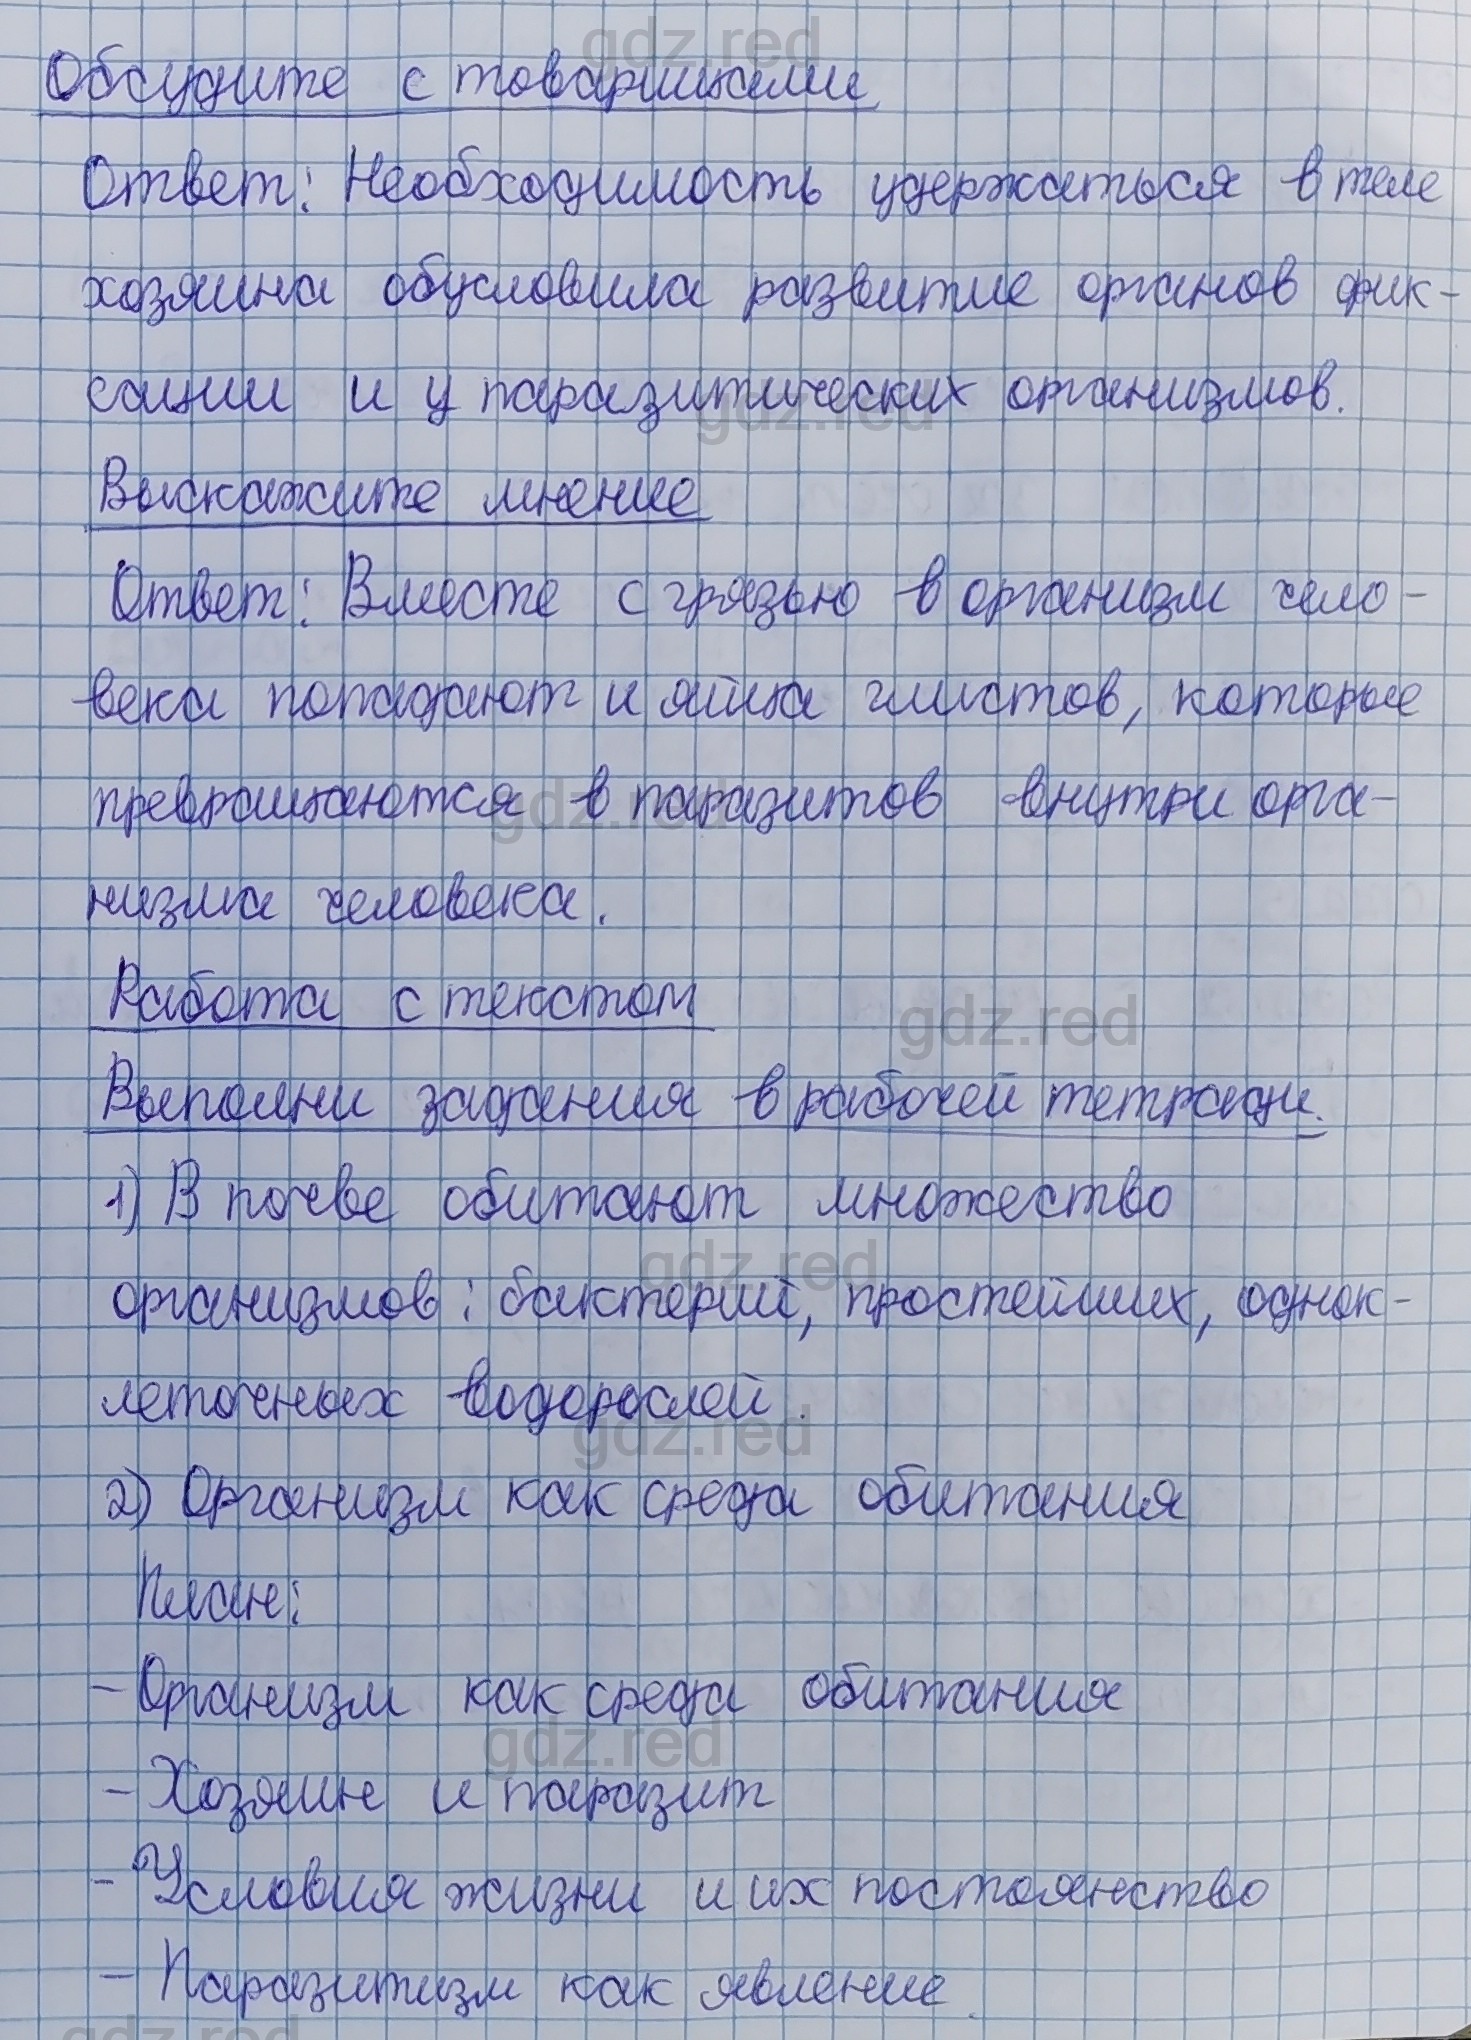 gdz.red
Обсудите с товарищами
Ответ: Необходимость удержаться в теле
хозяина обусловила развитие органов фик-
сации и у паразитических организмов.
gdz.red
Выскажите мнение
Ответ: Вместе с грязью в организм чело-
века попадают и яйца глистов, которые
превращаются в паразитов внутри орга-
gdz.red
низма человека.
Работа с текстом
gdz.red
Выполни задания в рабочей тетради.
1) В почве обитают множество
gdz.red
организмов: бактерий, простейших, однок-
леточных водорослей.
gdz.red
2) Организм как среда обитания
План:
- Организм как среда обитания
gdz.red
- Хозяин и паразит
- Условия жизни и их постоянство
- Паразитизм как явление.
gdz.red